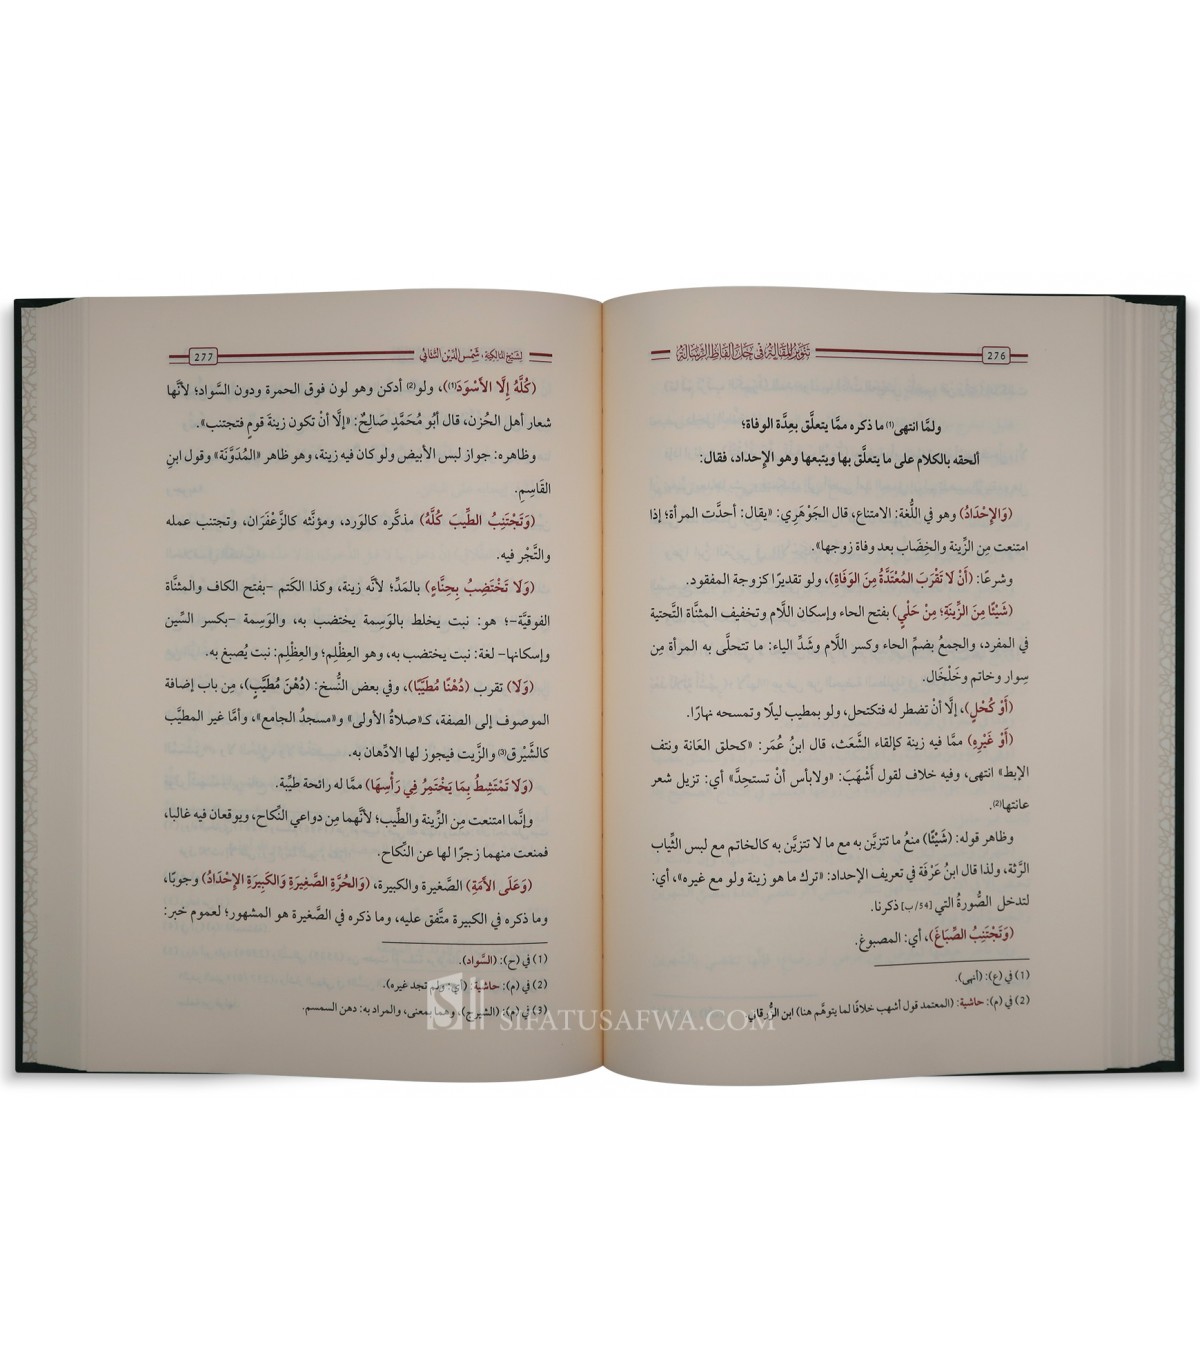 276
تنوير المقالة في حل ألفاظ الرسالة
ولمَّا انتهى(1) ما ذكره ممَّا يتعلَّق بعِدَّة الوفاة؛
ألحقه بالكلام على ما يتعلَّق بها ويتبعها وهو الإحداد، فقال:
(وَالإِحْدَادُ) وهو في اللُّغة: الامتناع، قال الجَوْهَرِي: «يقال: أحدَّت المرأة؛ إذا
امتنعت مِن الزِّينة والخِضَاب بعد وفاة زوجها».
وشرعًا: (أَنْ لا تَقْرَبَ المُعْتَدَّةُ مِنَ الوَفَاةِ)، ولو تقديرًا كزوجة المفقود.
(شَيْئًا مِنَ الزِّينَةِ؛ مِنْ حَلْيٍ) بفتح الحاء وإسكان اللَّام وتخفيف المثنَّاة التَّحتية
في المفرد، والجمعُ بضمِّ الحاء وكسر اللَّام وشَدِّ الياء: ما تتحلَّى به المرأة مِن
سِوار وخاتم وخَلْخَال.
(أَوْ كُحْلٍ)، إلَّا أنْ تضطر له فتكتحل، ولو بمطيب ليلًا وتمسحه نهارًا.
(أَوْ غَيْرِهِ) ممَّا فيه زينة كإلقاء الشَّعَث، قال ابنُ عُمَر: «كحلق العَانة ونتف
الإبط» انتهى، وفيه خلاف لقول أَشْهَبَ: «ولابأس أنْ تستحدَّ» أي: تزيل شعر
عانتها(2).
وظاهر قوله: (شَيْئًا) منعُ ما تتزيَّن به مع ما لا تتزيَّن به كالخاتم مع لبس الثِّياب
الرَّثة، ولذا قال ابنُ عَرَفَة في تعريف الإحداد: «ترك ما هو زينة ولو مع غيره»، أي:
لتدخل الصُّورةُ التي [54/ب] ذكرنا.
(وَتَجْتَنِبُ الصِّبَاغَ)، أي: المصبوغ.
(1) في (ع): (أنهى).
(2) في (م): حاشية: (المعتمد قول أشهب خلافًا لما يتوهَّم هنا) ابن الزُّرقاني.
لشيخ المالكية: شمس الدين التتائي
277
(كُلَّهُ إِلَّا الأَسْوَدَ(1))، ولو(2) أدكن وهو لون فوق الحمرة ودون السَّواد؛ لأنَّها
شعار أهل الحُزن، قال أبُو مُحَمَّدٍ صَالِحٌ: «إلَّا أنْ تكون زينةَ قومٍ فتجتنب».
وظاهره: جواز لبس الأبيض ولو كان فيه زينة، وهو ظاهر «المُدَوَّنَة» وقول ابنِ
القَاسِمِ.
(وَتَجْتَنِبُ الطِّيبَ كُلَّهُ) مذكَّره كالوَرد، ومؤنَّثه كالزَّعْفَرَان، وتجتنب عمله
والتَّجْر فيه.
(وَلا تَخْتَضِبُ بِحِنَّاءٍ) بالمَدِّ؛ لأنَّه زينة، وكذا الكَتم -بفتح الكاف والمثنَّاة
الفوقيَّة-؛ هو: نبت يخلط بالوَسِمة يختضب به، والوَسِمة -بكسر السِّين
وإسكانها- لغة: نبت يختضب به، وهو العِظْلِم؛ والعِظْلِم: نبت يُصبغ به.
(وَلَا) تقرب (دُهْنًا مُطَيَّبًا)، وفي بعض النُّسخ: (دُهْنَ مُطَيَّبٍ)، مِن باب إضافة
الموصوف إلى الصفة، كـ«صلاةُ الأولى» و«مسجدُ الجامع»، وأمَّا غير المطيَّب
كالشَّيْرق(3) والزَّيت فيجوز لها الادِّهان به.
(وَلَا تَمْتَشِطُ بِمَا يَخْتَمِرُ فِي رَأْسِهَا) ممَّا له رائحة طيِّبة.
وإنَّما امتنعت مِن الزِّينة والطِّيب؛ لأنَّهما مِن دواعي النِّكاح، ويوقعان فيه غالبا،
فمنعت منهما زجرًا لها عن النِّكاح.
(وَعَلَى الأَمَةِ) الصَّغيرة والكبيرة، (وَالحُرَّةِ الصَّغِيرَةِ وَالكَبِيرَةِ الإِحْدَادُ) وجوبًا،
وما ذكره في الكبيرة متَّفق عليه، وما ذكره في الصَّغيرة هو المشهور؛ لعموم خبر:
(1) في (ح): (السَّواد).
(2) في (م): حاشية: (أي: ولم تجد غيره).
(3) في (م): (الشيرج)، وهما بمعنى، والمراد به: دهن السمسم.
SIFATUSAFWA.COM